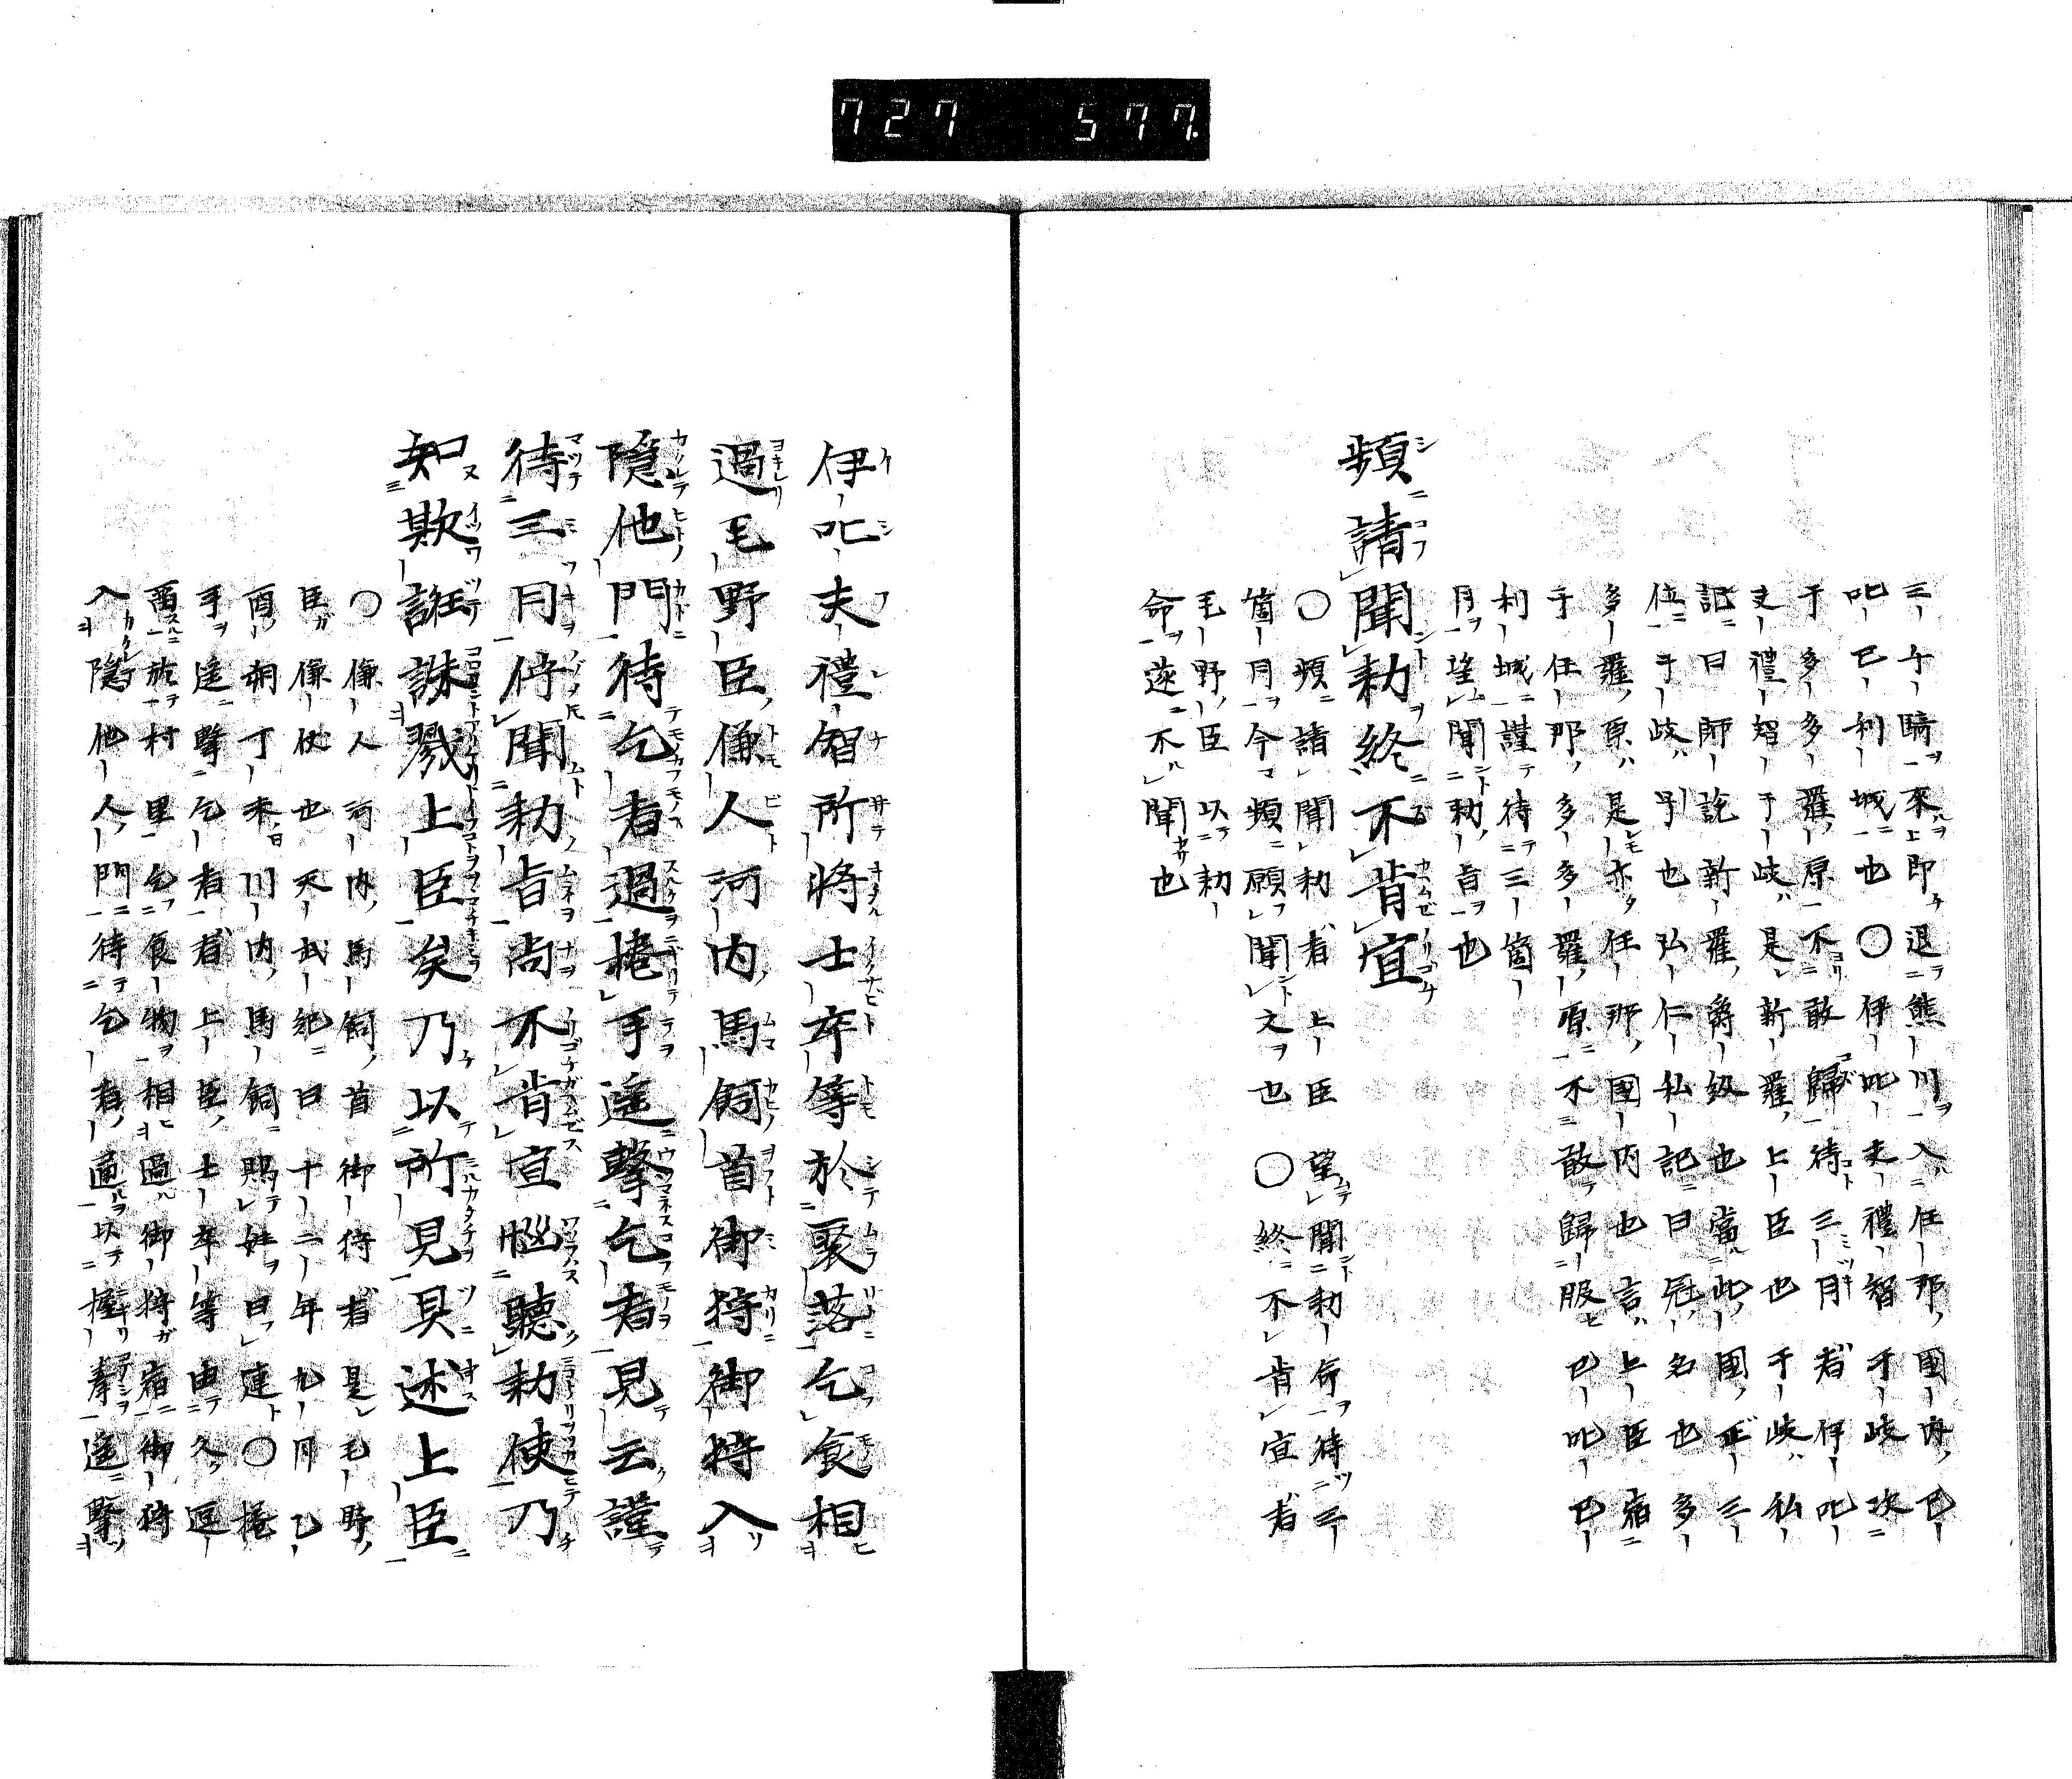 727 577.
三千騎来即退熊川入任那國内巳
叱巳利城也〇伊叱夫禮智干岐次
于多多羅原不敢歸待三月者伊叱
夫禮智于岐是新羅上臣也于岐私
記曰師説新羅爵級也當此國正三
位于岐引也弘仁私記曰冠名也多
多羅原是亦任那國内也言上臣宿
于任那多多羅原不敢歸服巳叱巳
利城謹待三箇
月望聞勅旨也
頻請聞勅終不肯宣
〇頻請聞勅者上臣望聞勅命待三
箇月今頻願聞文也〇終不肯宣者
毛野臣以勅
命遂不聞也
伊叱夫禮智所將士卒等於聚落乞食相
過毛野臣傔人河内馬飼首御狩御狩入
隠他門待乞者過捲手遥擊乞者見云謹
待三月佇聞勅旨尚不肯宣惱聽勅使乃
知欺誑誅戮上臣矣乃以所見具述上臣
〇傔人河内馬飼首御狩者是毛野
臣傔仗也天武紀曰十二年九月乙
酉朔丁未川内馬飼賜姓曰連〇捲
手遥擊乞者者上臣士卒等由久逗
畱於村里乞食物相過御狩宿御狩
入隠他人門待乞者過以握拳遥擊